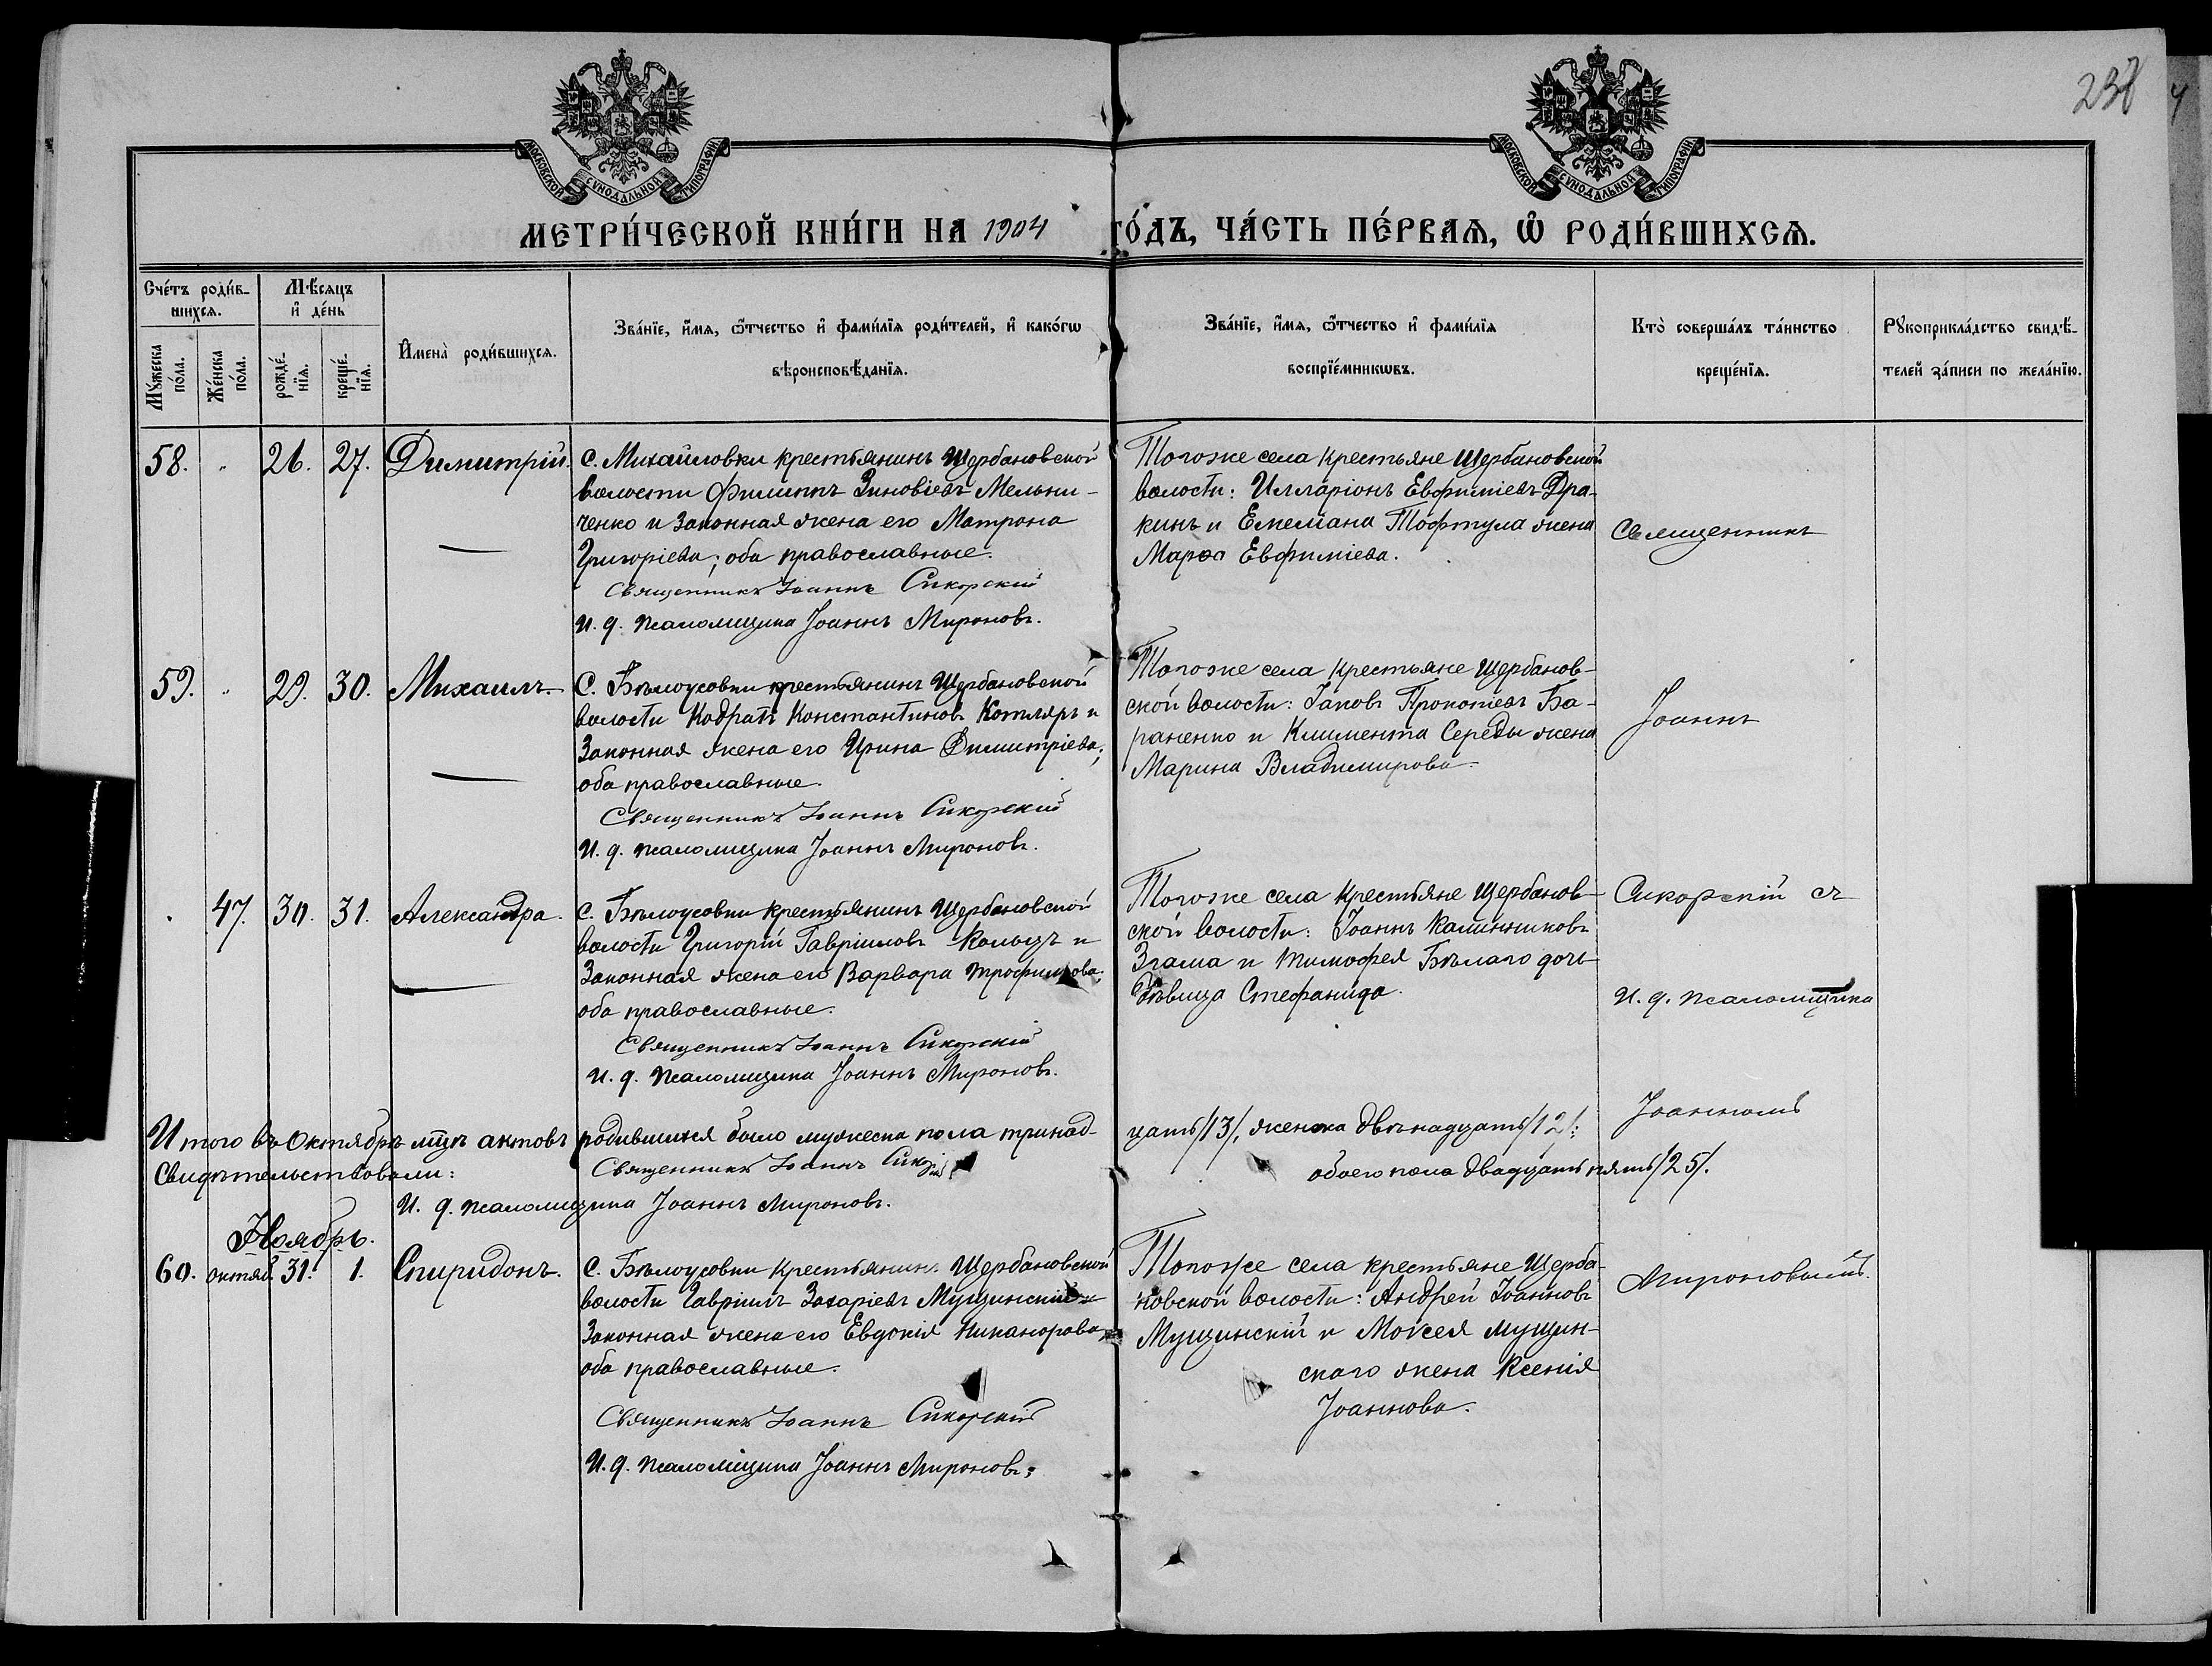 238
4
МОСКОВСКОЙ СѴНОДАЛЬНОЙ ТИПОГРАФІИ
МОСКОВСКОЙ СѴНОДАЛЬНОЙ ТИПОГРАФІИ
МЕТРИ́ЧЕСКОЙ КНИ́ГИ НА 1904 ГО́ДЪ, ЧА́СТЬ ПЕ́РВАѦ, Ѡ҆ РОДИ́ВШИХСѦ.
Сче́тъ роди́в-
шихсѧ.
Мꙋжеска по́ла.
Же́нска по́ла.
Мѣ́сяцъ
и҆ де́нь
рожде́-
нїѧ.
креще́-
нїѧ.
И҆мена̀ роди́вшихсѧ.
Зва́нїе, и҆́мѧ, ѻ҆́тчество и҆ фами́лїѧ роди́телей, и҆ како́гѡ
вѣроисповѣ́данїѧ.
Зва́нїе, и҆́мѧ, ѻ҆́тчество и҆ фами́лїѧ
воспрїе́мникѡвъ.
Кто̀ соверша́лъ та́инство
креще́нїѧ.
Рꙋкоприкла́дство свидѣ́-
телей за́писи по жела́нїю.
58. " 26. 27. Димитрій.
С. Михайловки крестьянинъ Щербановской
волости Филиппъ Зиновіевъ Мельни-
ченко и законная жена его Матрона
Григоріева; оба православные.
Священникъ Іоаннъ Сикорскій
И. д. псаломщика Іоаннъ Мироновъ.
Того же села крестьяне Щербановской
волости: Илларіонъ Евфиміевъ Дра-
кинъ и Емеліана Тофтула жена
Марѳа Евфиміева.
Священникъ
59. " 29. 30. Михаилъ.
С. Бѣлоусовки крестьянинъ Щербановской
волости Кодратъ Константиновъ Котляръ и
законная жена его Ирина Димитріева;
оба православные.
Священникъ Іоаннъ Сикорскій
И. д. псаломщика Іоаннъ Мироновъ.
Того же села крестьяне Щербанов-
ской волости: Іаковъ Прокопіевъ Ба-
раненко и Климента Середы жена
Марина Владимирова.
Іоаннъ
47. 30. 31. Александра.
С. Бѣлоусовки крестьянинъ Щербановской
волости Григорій Гавріиловъ Кольцъ и
законная жена его Варвара Трофимова;
оба православные.
Священникъ Іоаннъ Сикорскій
И. д. псаломщика Іоаннъ Мироновъ.
Того же села крестьяне Щербанов-
ской волости: Іоаннъ Калинниковъ
Згама и Тимофея Бѣлаго дочь
дѣвица Стефанида.
Сикорскій съ
И. д. псаломщика
Іоанномъ
Итого въ Октябрѣ мцѣ актовъ родившихся было мужеска пола тринад-
цать /13/, женска двѣнадцать /12/;
обоего пола двадцать пять /25/.
Свидѣтельствовали: Священникъ Іоаннъ Сикорскій
И. д. псаломщика Іоаннъ Мироновъ.
Ноябрь.
60. октяб. 31. 1. Спиридонъ.
С. Бѣлоусовки крестьянинъ Щербановской
волости Гавріилъ Захаріевъ Мущинскій и
законная жена его Евдокія Никанорова
оба православные.
Священникъ Іоаннъ Сикорскій
И. д. псаломщика Іоаннъ Мироновъ.
Того же села крестьяне Щерба-
новской волости: Андрей Іоанновъ
Мущинскій и Моѵсея Мущин-
скаго жена Ксенія
Іоаннова.
Мироновымъ.